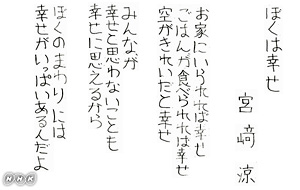 ぼくは幸せ
宮﨑 涼
お家にいられれば幸せ
ごはんが食べられれば幸せ
空がきれいだと幸せ
みんなが
幸せと思わないことも
幸せに思えるから
ぼくのまわりには
幸せがいっぱいあるんだよ
NHK